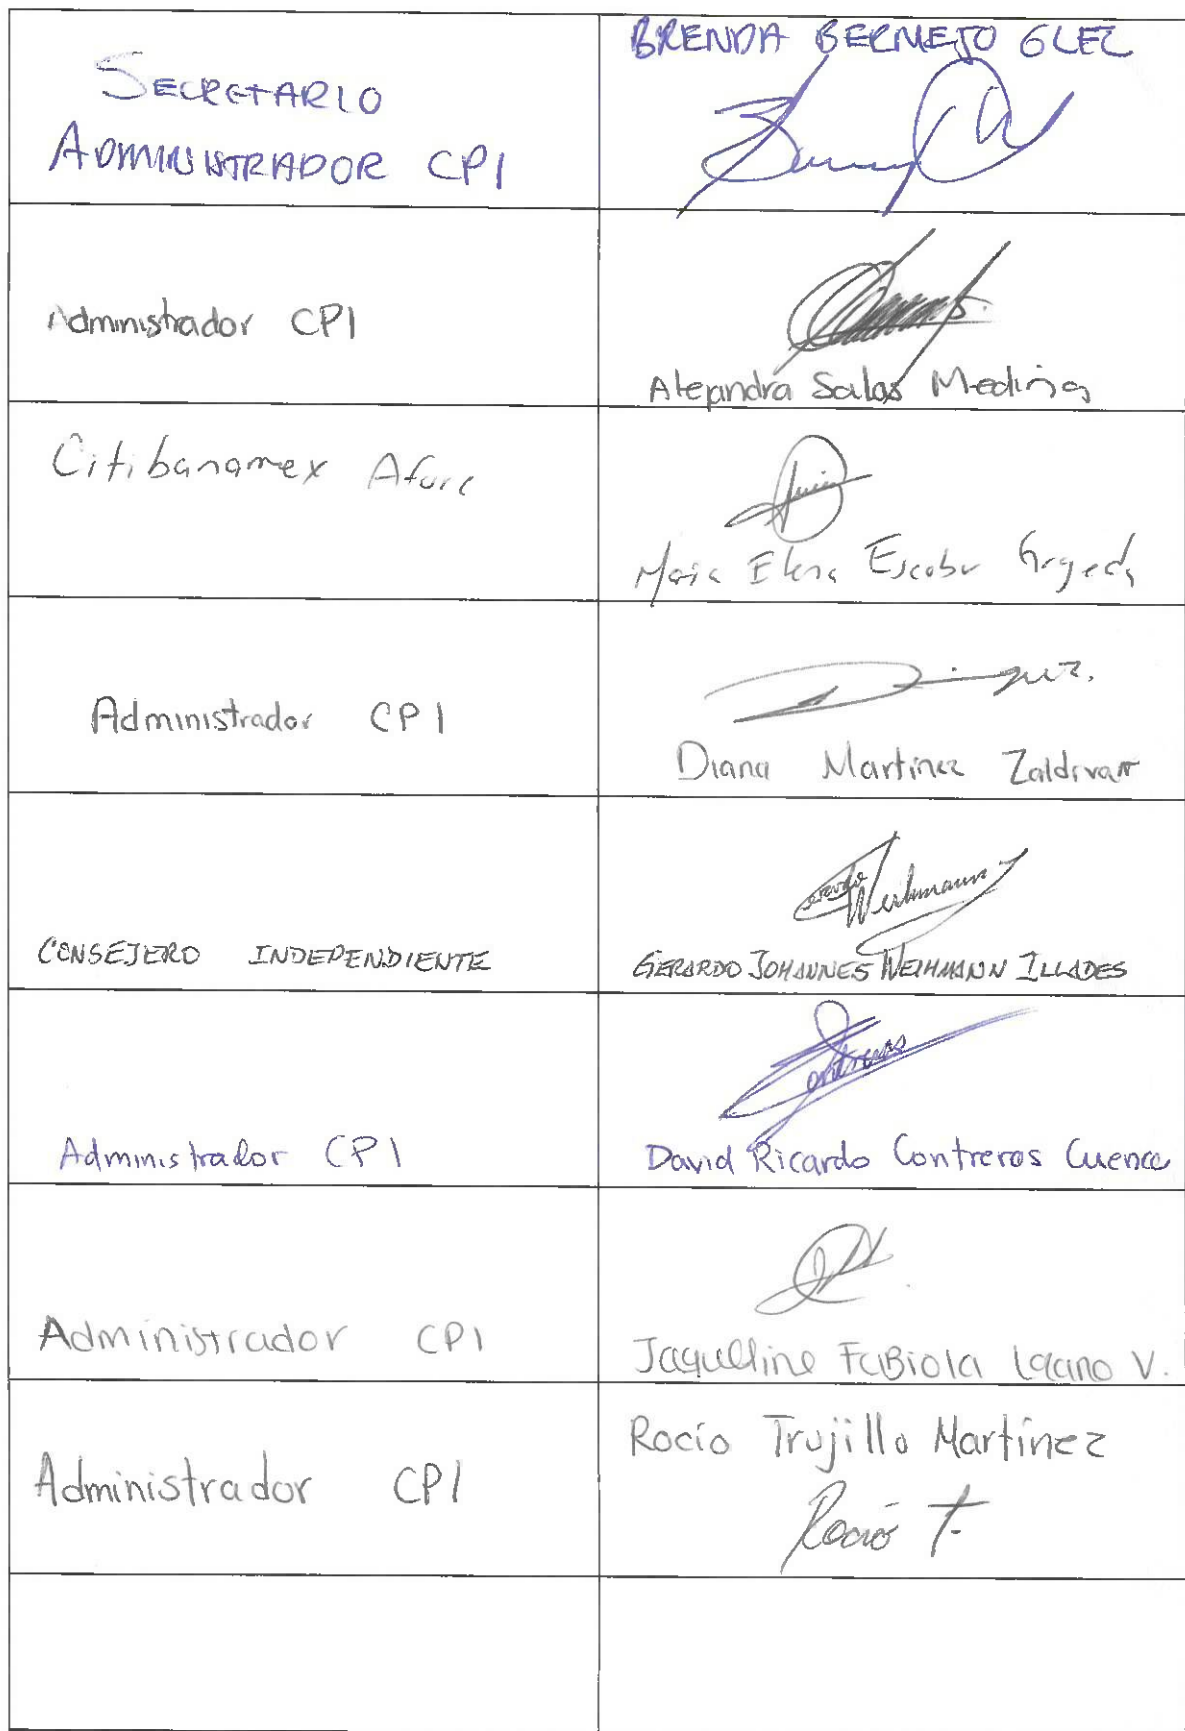 SECRETARIO
ADMINISTRADOR CPI
BRENDA BERMEJO
Administrador CPI
Alejandra Salas Medina
Citibanamex Afore
Maria Elena Escobar
Administrador CPI
Diana Martinez Zaldivar
CONSEJERO INDEPENDIENTE
GERARDO JOHANNES WEIHMANN ILLADES
Administrador CPI
Contreras
David Ricardo Contreras Cuenca
Administrador CPI
Jaquelline FaBiola Lozano V.
Administrador CPI
Rocío Trujillo Martínez
Rocío T.